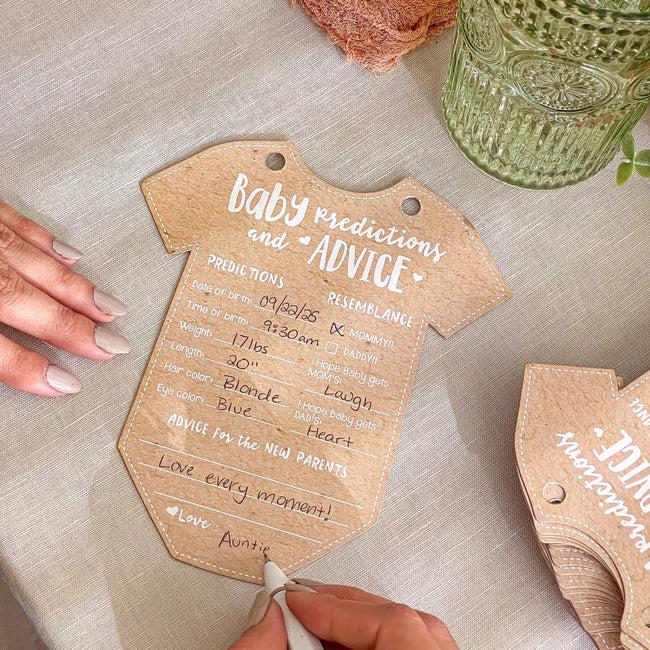 Baby Predictions
and ADVICE
PREDICTIONS
Date of birth: 09/22/25
Time of birth: 9:30am
Weight: 17lbs
Length: 20"
Hair color: Blonde
Eye color: Blue
RESEMBLANCE
X MOMMY!!
DADDY!!
I Hope Baby gets
MOM'S: Laugh
I Hope Baby gets
DAD'S: Heart
ADVICE for the NEW PARENTS
Love every moment!
Love
Auntie
Predictions